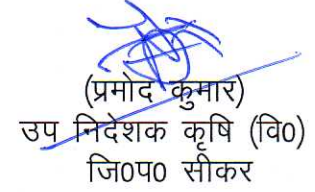 (प्रमोद कुमार)
उप निदेशक कृषि (वि0)
जि0प0 सीकर